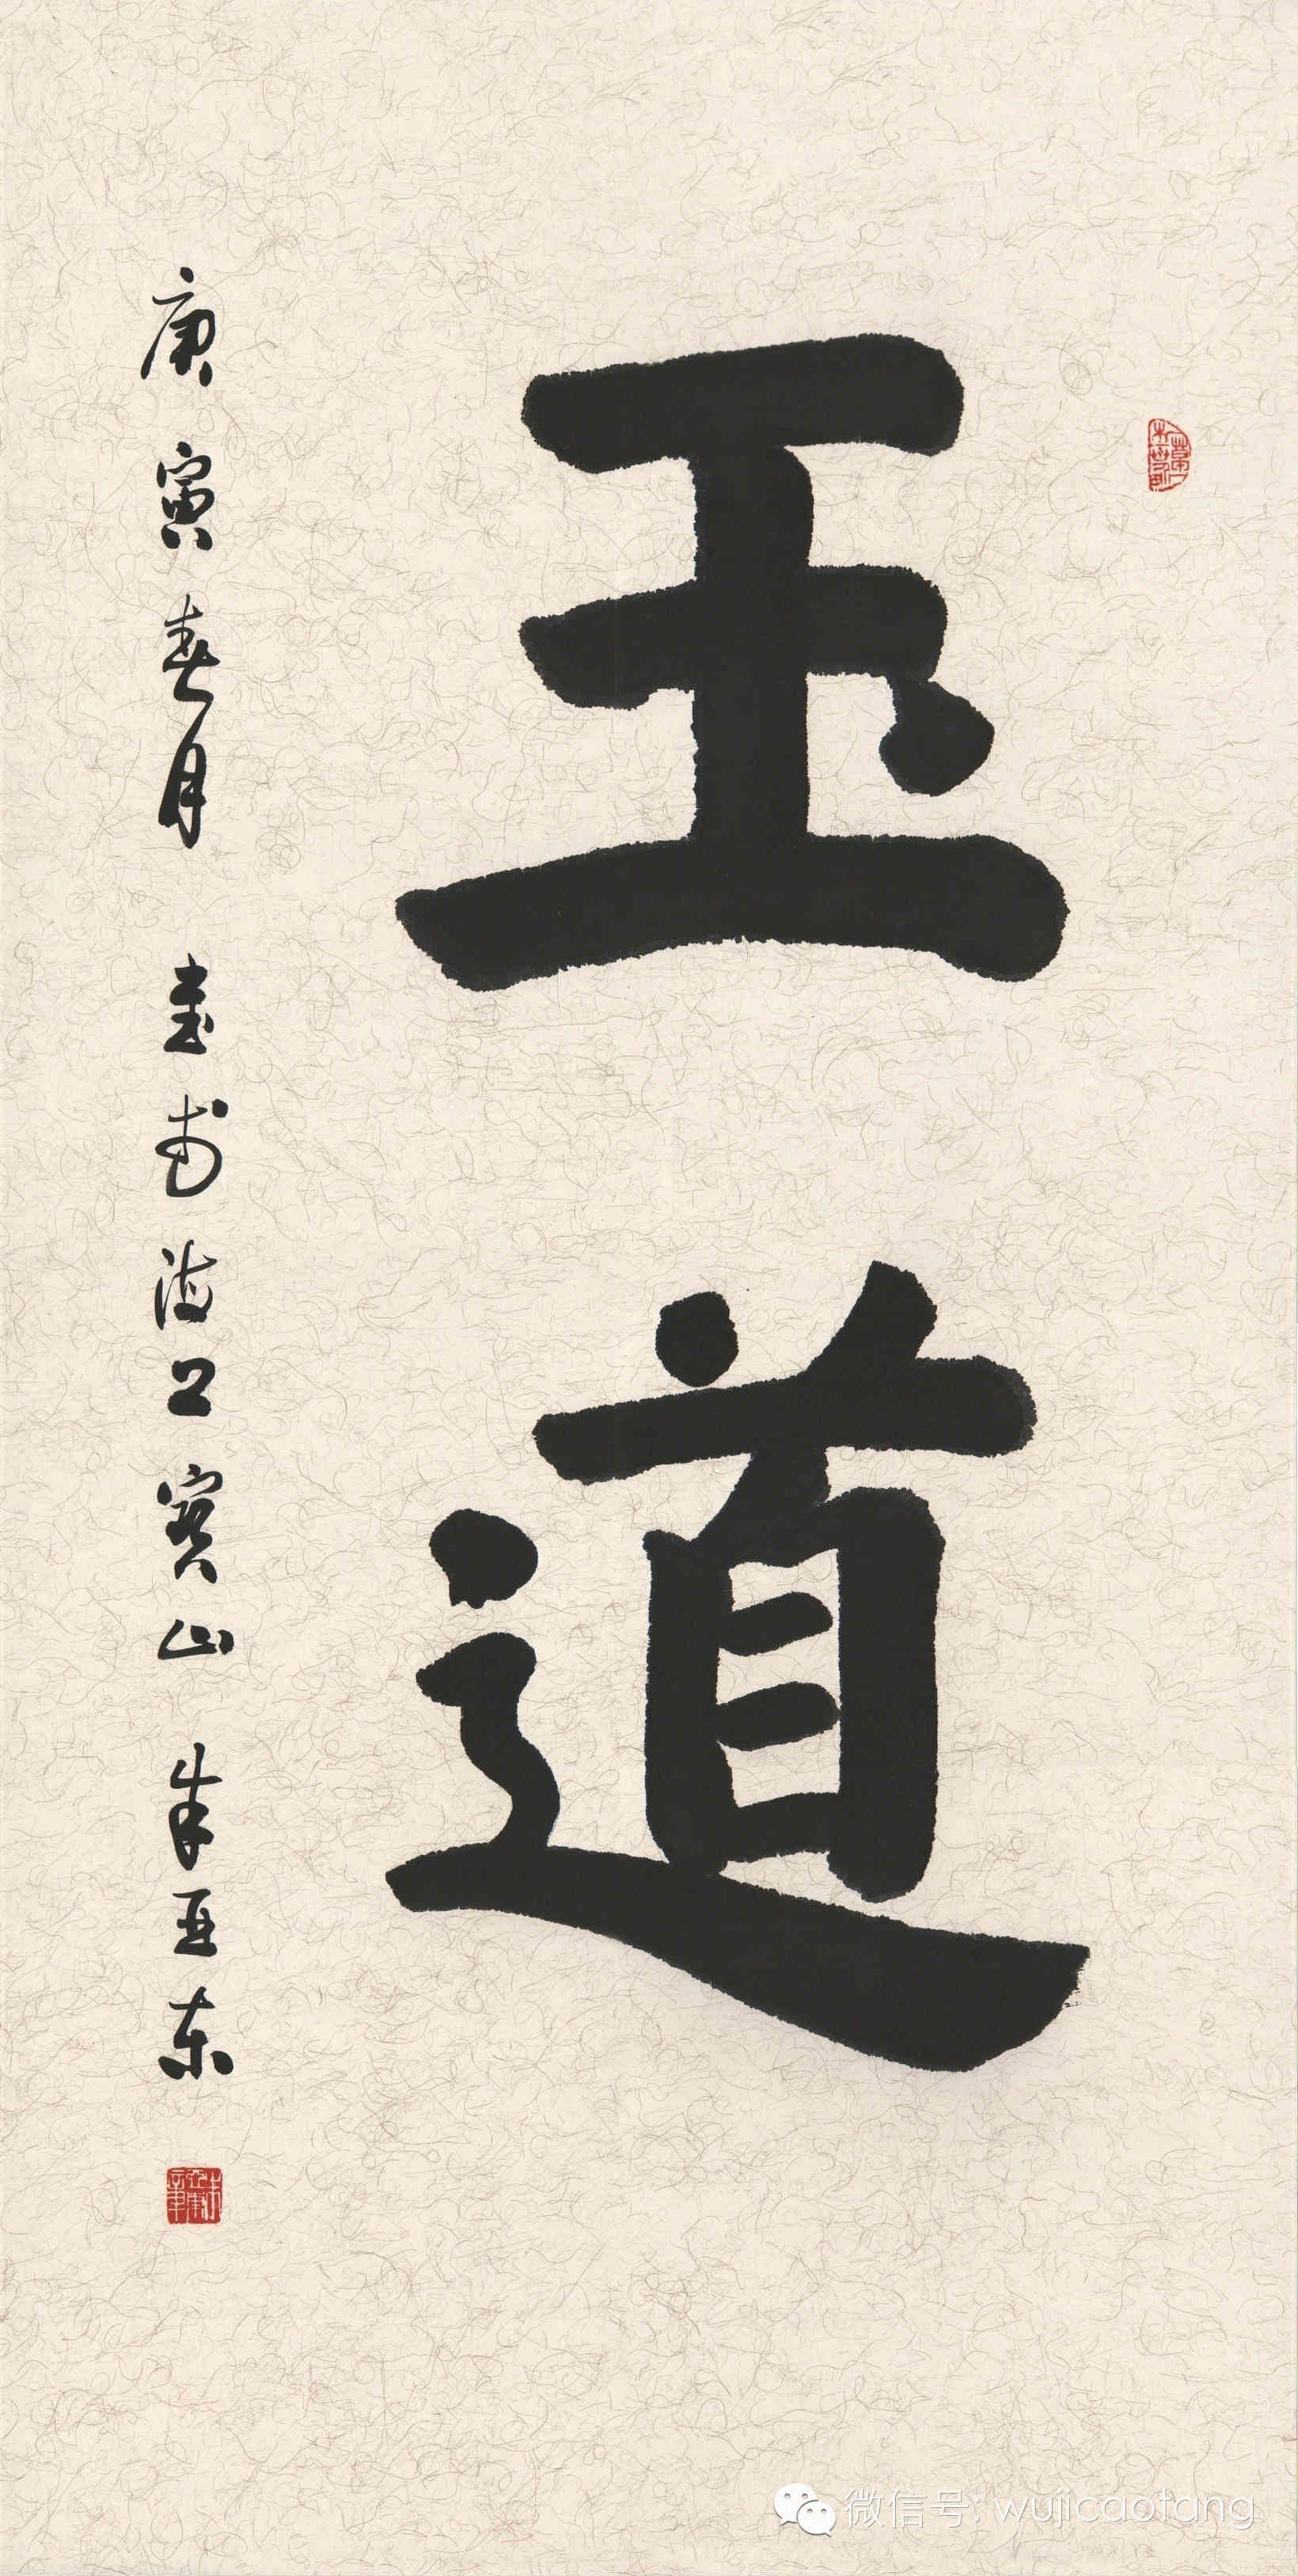 玉道
庚寅春月 書於滬上寶山 朱亚东
微信号: wujicaotang